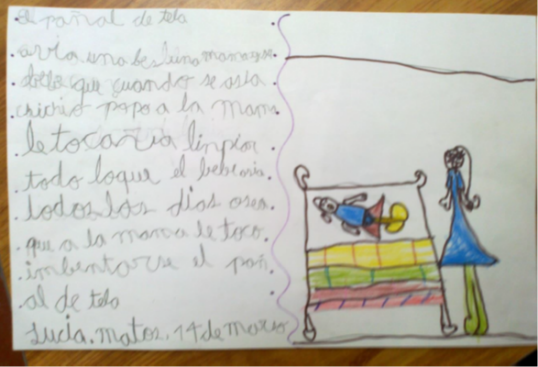 el pañal de tela
avia una bes una mama que
dotla que cuando se asia
chichi o popo a la mama
le tocaria linpiar
todo loque el bebe asia
todos los dias osea
que a la mama le toco
imbentarse el pañ
al de tela
Lucia. matos. 14 de marzo